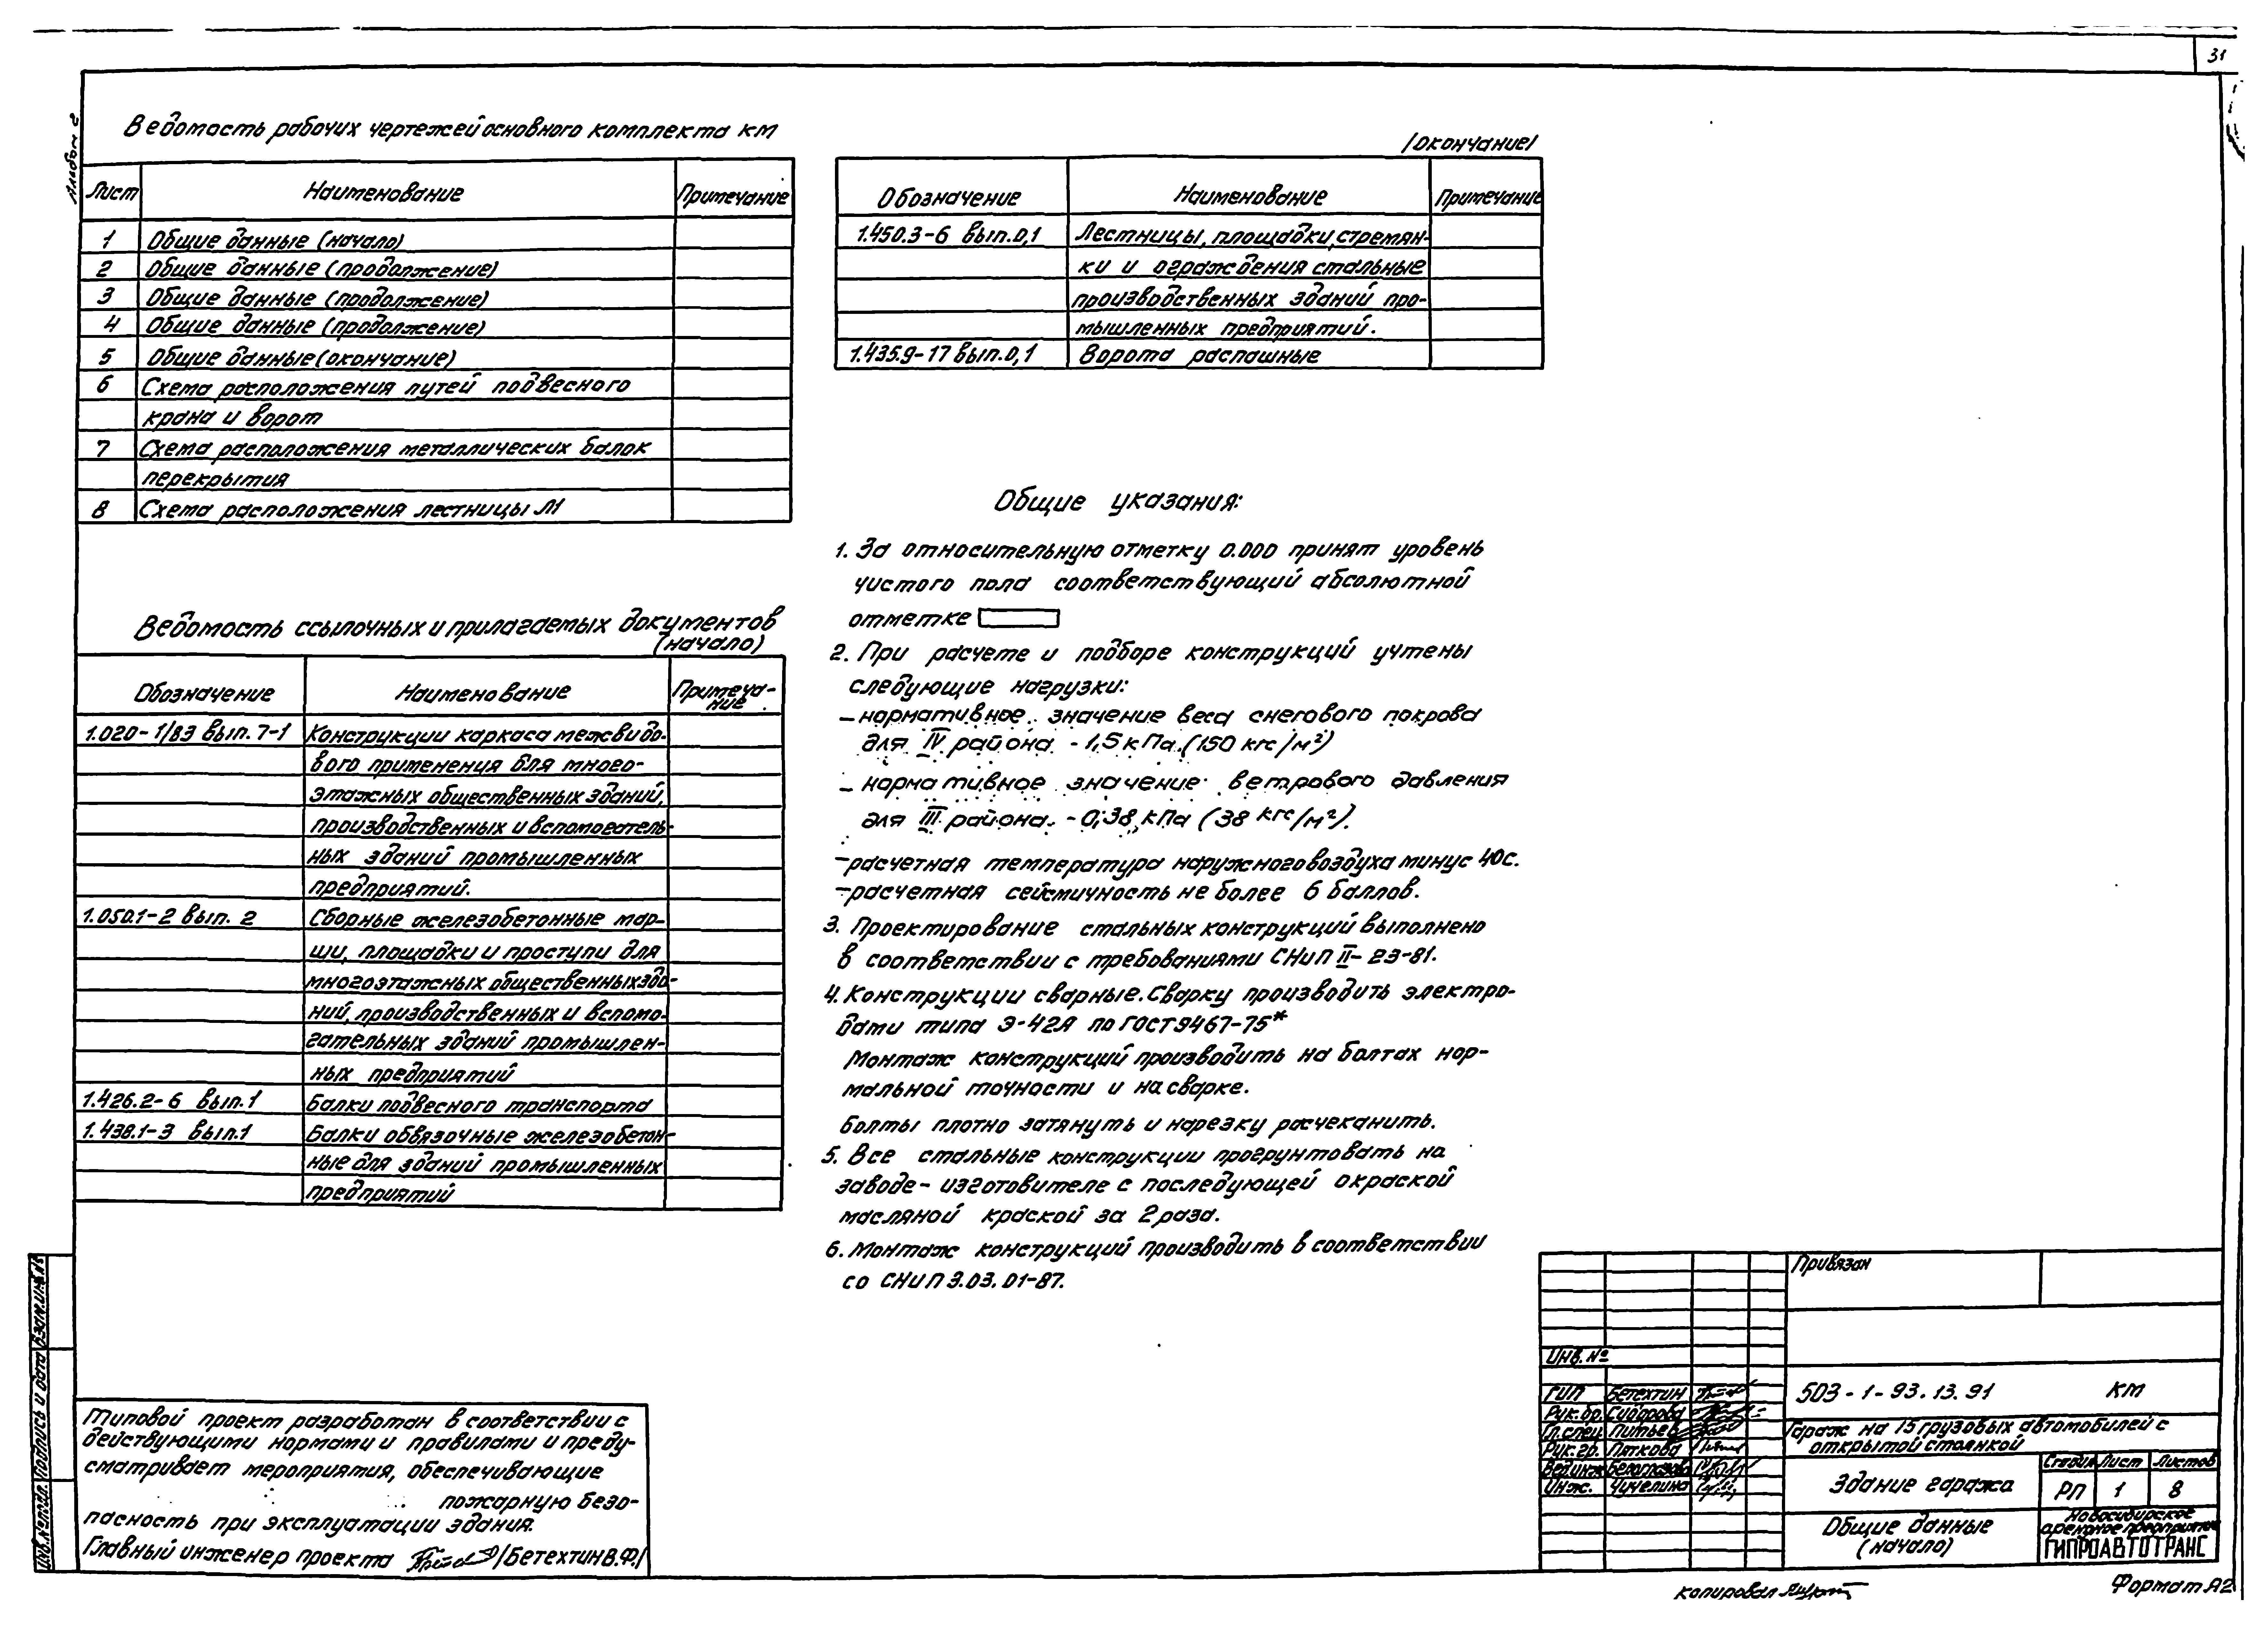 31
Альбом 2
Ведомость рабочих чертежей основного комплекта КМ
Лист Наименование Примечание
1 Общие данные (начало)
2 Общие данные (продолжение)
3 Общие данные (продолжение)
4 Общие данные (продолжение)
5 Общие данные (окончание)
6 Схема расположения путей подвесного
крана и ворот
7 Схема расположения металлических балок
перекрытия
8 Схема расположения лестницы Л1
Ведомость ссылочных и прилагаемых документов
(начало)
Обозначение Наименование Примеча-
ние
1.020-1/83 вып. 7-1 Конструкции каркаса межвидо-
вого применения для много-
этажных общественных зданий,
производственных и вспомогатель-
ных зданий промышленных
предприятий.
1.050.1-2 вып. 2 Сборные железобетонные мар-
ши, площадки и проступи для
многоэтажных общественных зда-
ний, производственных и вспомо-
гательных зданий промышлен-
ных предприятий
1.426.2-6 вып.1 Балки подвесного транспорта
1.438.1-3 вып.1 Балки обвязочные железобетон-
ные для зданий промышленных
предприятий
/окончание/
Обозначение Наименование Примечание
1.450.3-6 вып.0,1 Лестницы, площадки, стремян-
ки и ограждения стальные
производственных зданий про-
мышленных предприятий.
1.435.9-17 вып.0,1 Ворота распашные
Общие указания:
1. За относительную отметку 0.000 принят уровень
чистого пола соответствующий абсолютной
отметке
2. При расчете и подборе конструкций учтены
следующие нагрузки:
- нормативное значение веса снегового покрова
для IV района - 1,5 кПа (150 кгс/м²)
- нормативное значение ветрового давления
для III района - 0,38 кПа (38 кгс/м²).
- расчетная температура наружного воздуха минус 40с.
- расчетная сейсмичность не более 6 баллов.
3. Проектирование стальных конструкций выполнено
в соответствии с требованиями СНиП II-23-81.
4. Конструкции сварные. Сварку производить электро-
дами типа Э-42А по ГОСТ 9467-75*
Монтаж конструкций производить на болтах нор-
мальной точности и на сварке.
Болты плотно затянуть и нарезку расчеканить.
5. Все стальные конструкции прогрунтовать на
заводе-изготовителе с последующей окраской
масляной краской за 2 раза.
6. Монтаж конструкций производить в соответствии
со СНиП 3.03.01-87.
Типовой проект разработан в соответствии с
действующими нормами и правилами и преду-
сматривает мероприятия, обеспечивающие
пожарную безо-
пасность при эксплуатации здания.
Главный инженер проекта /Бетехтин В.Ф./
Взам.инв.№
Подпись и дата
Инв.№подл.
Привязан
Инв.№
ГИП Бетехтин
Рук.бр. Сидорова
Гл.спец Питьев
Рук.гр. Пяткова
Вед.инж
Инж. Чучелина
503-1-93.13.91 КМ
Гараж на 15 грузовых автомобилей с
открытой стоянкой
Здание гаража
Стадия Лист Листов
РП 1 8
Общие данные
(начало)
Новосибирское
арендное предприятие
ГИПРОАВТОТРАНС
Копировал
Формат А2